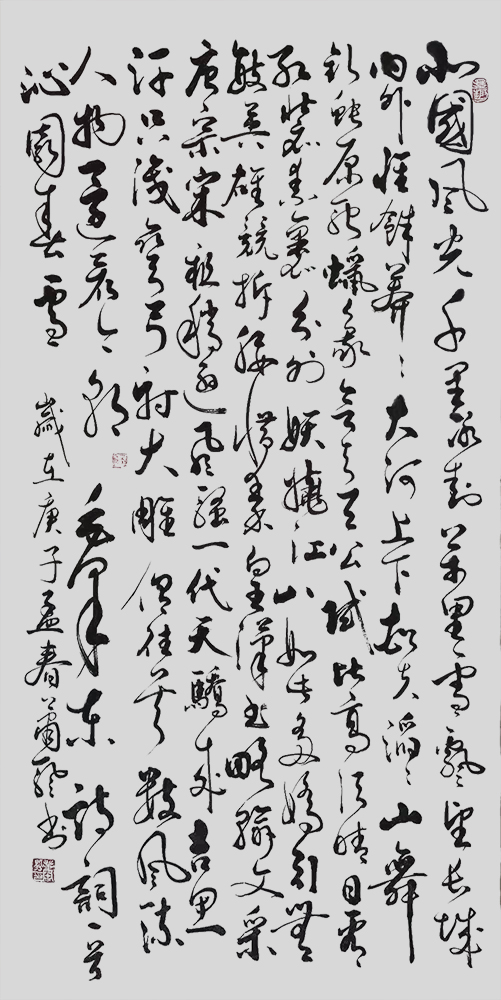 北國風光千里冰封萬里雪飄望長城
内外惟餘莽〻大河上下頓失滔〻山舞
銀蛇原馳蠟象欲與天公試比高須晴日看
紅裝素裹分外妖嬈江山如此多嬌引無
數英雄競折腰惜秦皇漢武略輸文采
唐宗宋祖稍遜風騷一代天驕成吉思
汗只識彎弓射大雕俱往矣數風流
人物還看今朝 毛澤東詩詞一首
沁園春雪 歲在庚子孟春蕭書